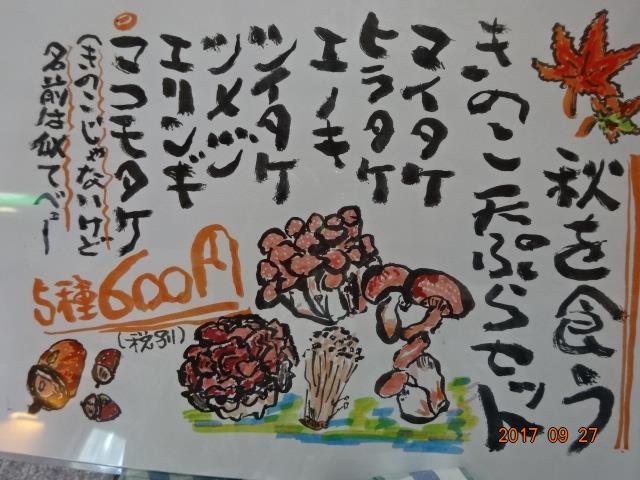 秋を食う
きのこ天ぷらセット
マイタケ
ヒラタケ
エノキ
シイタケ
シメジ
エリンギ
マコモタケ
(きのこじゃないけど
名前は似てべー
5種600円
(税別)
2017 09 27